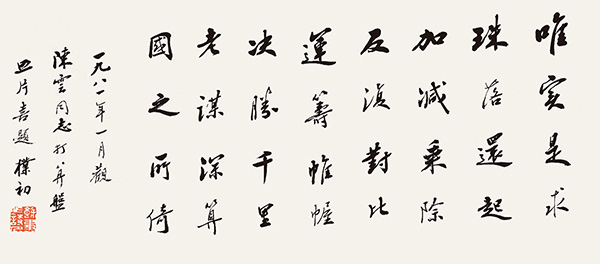 唯实是求
珠落還起
加减乘除
反復對比
運籌帷幄
决勝千里
老謀深算
國之所倚
一九八一年一月觀
陳雲同志打算盤
照片喜題 樸初